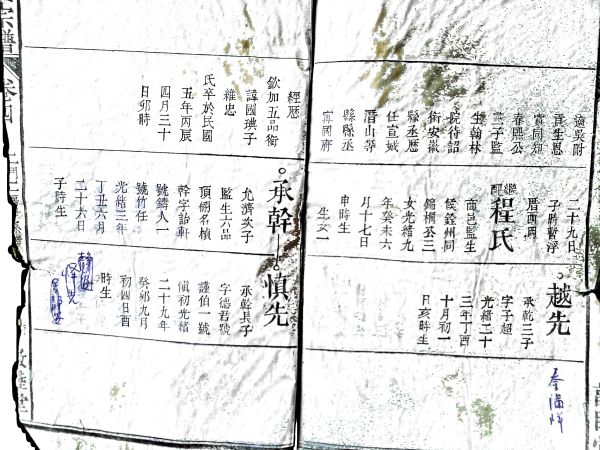 適吳附
貢生恩
賞同知
春熙公
三子監
生翰林
院待詔
銜安徽
縣丞歷
任宣城
潛山等
縣縣丞
寧國府
經歷
欽加五品銜
諱國璵子
維忠
氏卒於民國
五年丙辰
四月三十
日卯時
二十九日
子時暫浮
厝西興
繼配
程氏
商邑監生
候銓州同
錦桐公三
女光緒九
年癸未六
月十七日
申時生
生女一
承幹
允濟次子
監生六品
頂翎名楨
幹字詒軒
號鑄人一
號竹任
光緒三年
丁丑六月
二十六日
子時生
越先
承乾三子
字子超
光緒二十
三年丁酉
十月初一
日亥時生
慎先
承幹長子
字德君號
謹伯一號
慎初光緒
二十九年
癸卯九月
初四日酉
時生
宗譜
卷四